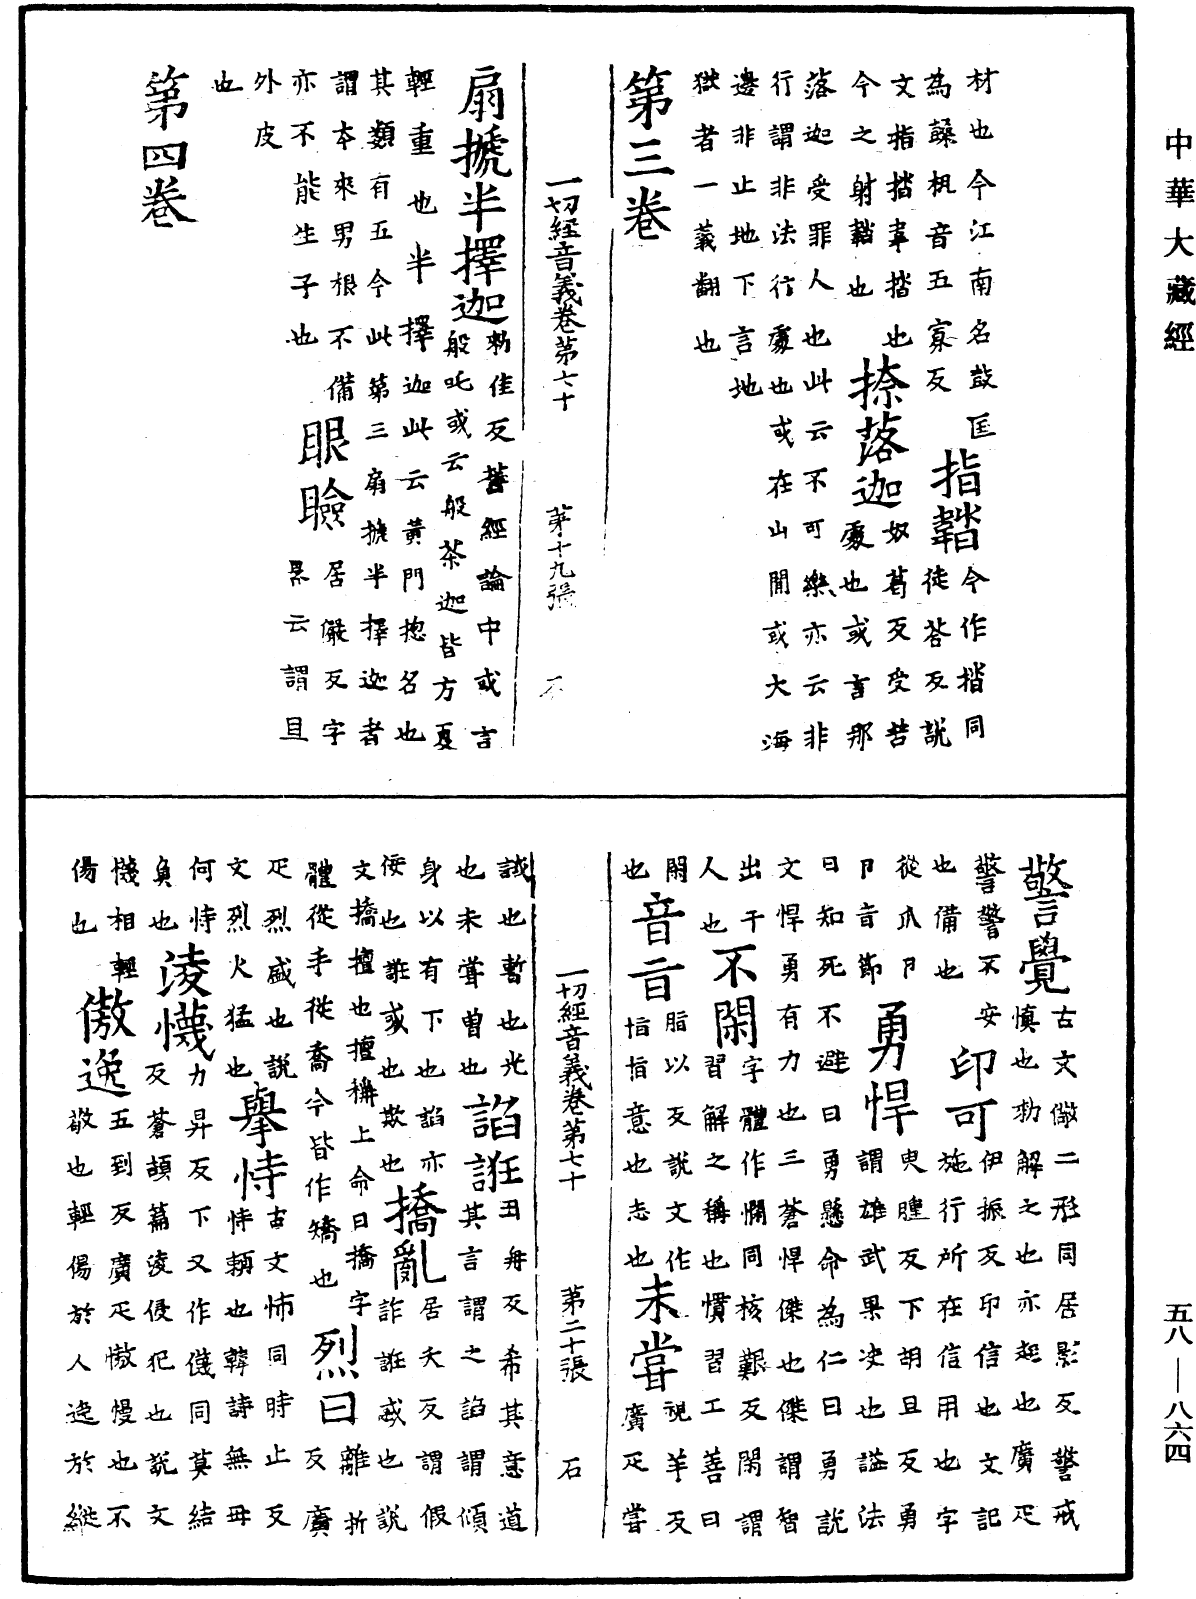 中華大藏經
材也今江南名鼓匡
為顙杋音五寡反
指韜
今作㧺同
徒荅反說
文指㧺韋㧺也
今之射韜也
捺落迦
奴葛反受苦
處也或言那
落迦受罪人也此云不可樂亦云非
行謂非法行處也或在山間或大海
邊非止地下言地
獄者一義翻也
第三卷
一切經音義卷第七十 第十九張 石
扇搋半擇迦
勑佳反舊經論中或言
般吒或云般荼迦皆方夏
輕重也半擇迦此云黃門揔名也
其類有五今此第三扇搋半擇迦者
謂本來男根不備
亦不能生子也
眼瞼
居儼反字
略云謂目
外皮
也
第四卷
警覺
古文儆二形同居影反警戒
慎也勑解之也亦起也廣疋
警警不安
也備也
印可
伊振反印信也文記
施行所在信用也字
從爪卪
卪音節
勇悍
臾腫反下胡旦反勇
謂雄武果決也謚法
曰知死不避曰勇懸命為仁曰勇說
文悍勇有力也三蒼悍傑也傑謂智
出千
人也
不閑
字體作憪同核艱反閑謂
習解之稱也慣習工善曰
閑
也
音旨
脂以反說文作
恉恉意也志也
未嘗
視羊反
廣疋嘗
誠也暫也光
也未嘗曾也
諂誑
丑冉反希其意道
其言謂之諂謂傾
身以有下也諂亦
佞也誑或也欺也
撟亂
居夭反謂假
詐誑惑也說
文撟擅也擅稱上命曰撟字
體從手從喬今皆作矯也
烈曰
離折
反廣
疋烈盛也說
文烈火猛也
舉恃
古文怖同時止反
恃賴也韓詩無母
何恃
負也
淩懱
力昇反下又作䁾同莫結
反蒼頡篇淩侵犯也說文
懱相輕
傷也
傲逸
五到反廣疋慠慢也不
敬也輕傷於人逸於縱
一切經音義卷第七十 第二十張 石
五八—八六四